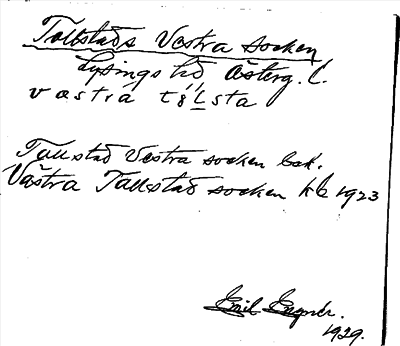 Tollstads Västra socken
Lysings hd Österg. l.
væstra
Tallstad Vestra socken bsk.
Västra Tallstad socken kb 1923
Emil
1929.